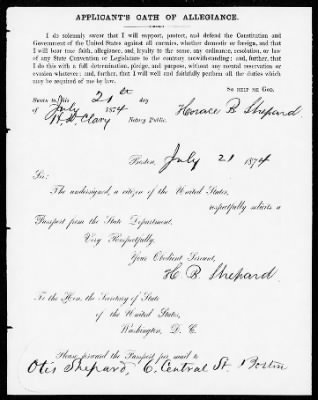 APPLICANT'S OATH OF ALLEGIANCE.
I do solemnly swear that I will support, protect, and defend the Constitution and
Government of the United States against all enemies, whether domestic or foreign, and that
I will bear true faith, allegiance, and loyalty to the same, any ordinance, resolution, or law
of any State Convention or Legislature to the contrary notwithstanding; and, further, that
I do this with a full determination, pledge, and purpose, without any mental reservation or
evasion whatever; and, further, that I will well and faithfully perform all the duties which
may be required of me by law.
SO HELP ME GOD.
Sworn to this 21st day
of July 1874
Horace B Shepard.
Notary Public.
Boston, July 21 1874
Sir:
The undersigned, a citizen of the United States,
respectfully solicits a
Passport from the State Department.
Very Respectfully,
Your Obedient Servant,
H. B. Shepard.
To the Hon. the Secretary of State
of the United States,
Washington, D. C.
Please forward the Passport per mail to
Otis Shepard, 6. Central St. Boston